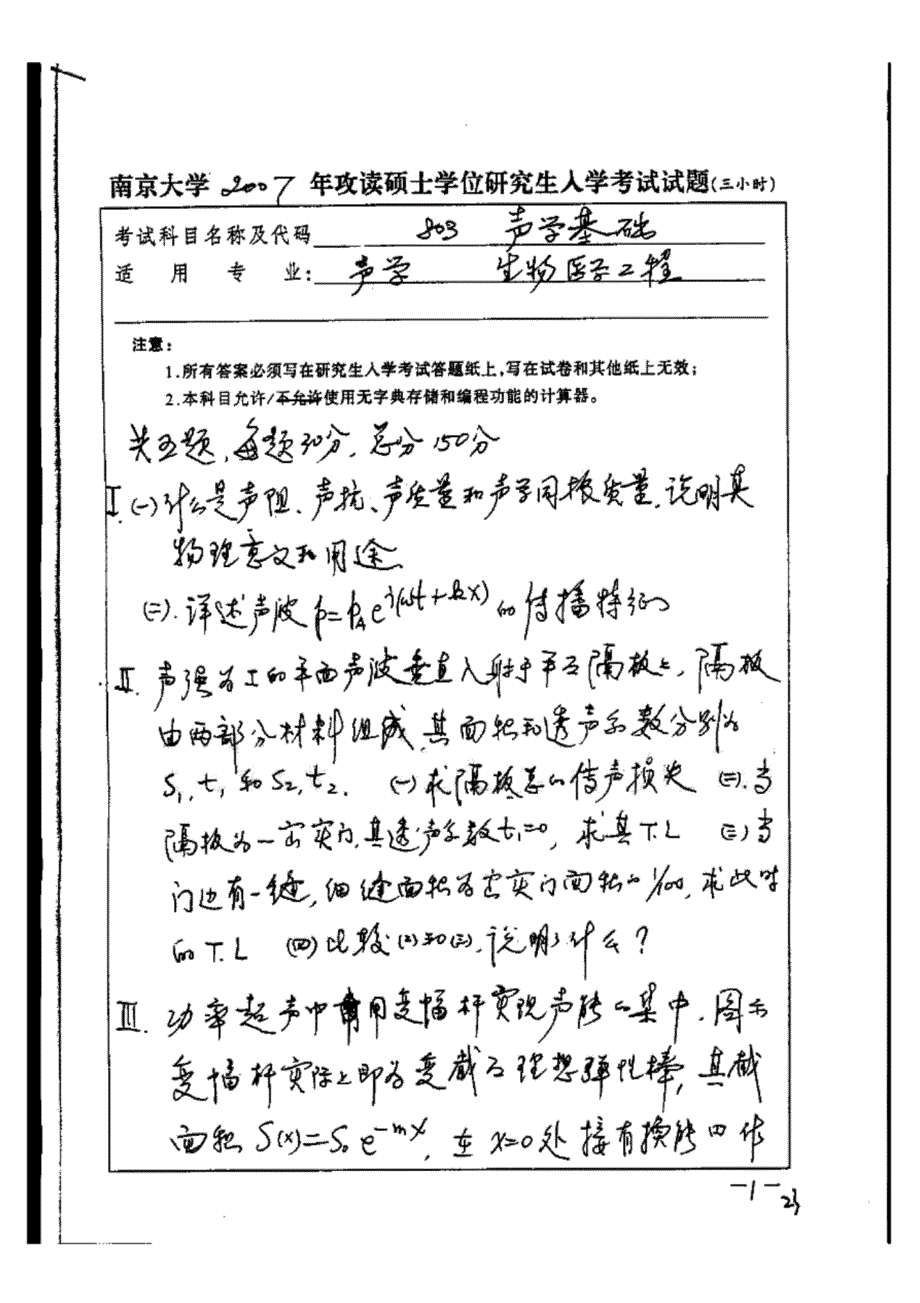 南京大学 2007 年攻读硕士学位研究生入学考试试题(三小时)
考试科目名称及代码 803 声学基础
适用专业: 声学 生物医学工程
注意:
1.所有答案必须写在研究生入学考试答题纸上,写在试卷和其他纸上无效;
2.本科目允许/不允许使用无字典存储和编程功能的计算器。
共五题,每题30分,总分150分
I.(一)什么是声阻、声抗、声质量和声学同振质量,说明其
物理意义和用途
(二).详述声波 p=p_A e^{j(ωt+kx)} 的传播特征
II. 声强为I的平面声波垂直入射于平面隔板上,隔板
由两部分材料组成,其面积和透声系数分别为
S₁,t₁和S₂,t₂. (一)求隔板总的传声损失 (二).当
隔板为一密实门,其透声系数t₁=0,求其T.L (三)当
门边有一缝,细缝面积为密实门面积的1/100,求此时
的T.L (四)比较(二)和(三),说明了什么?
III. 功率超声中常用变幅杆实现声能的集中.图示
变幅杆实际上即为变截面理想弹性棒,其截
面积 S(x)=S₀e^{-mx},在x=0处接有换能四作
-1-
23